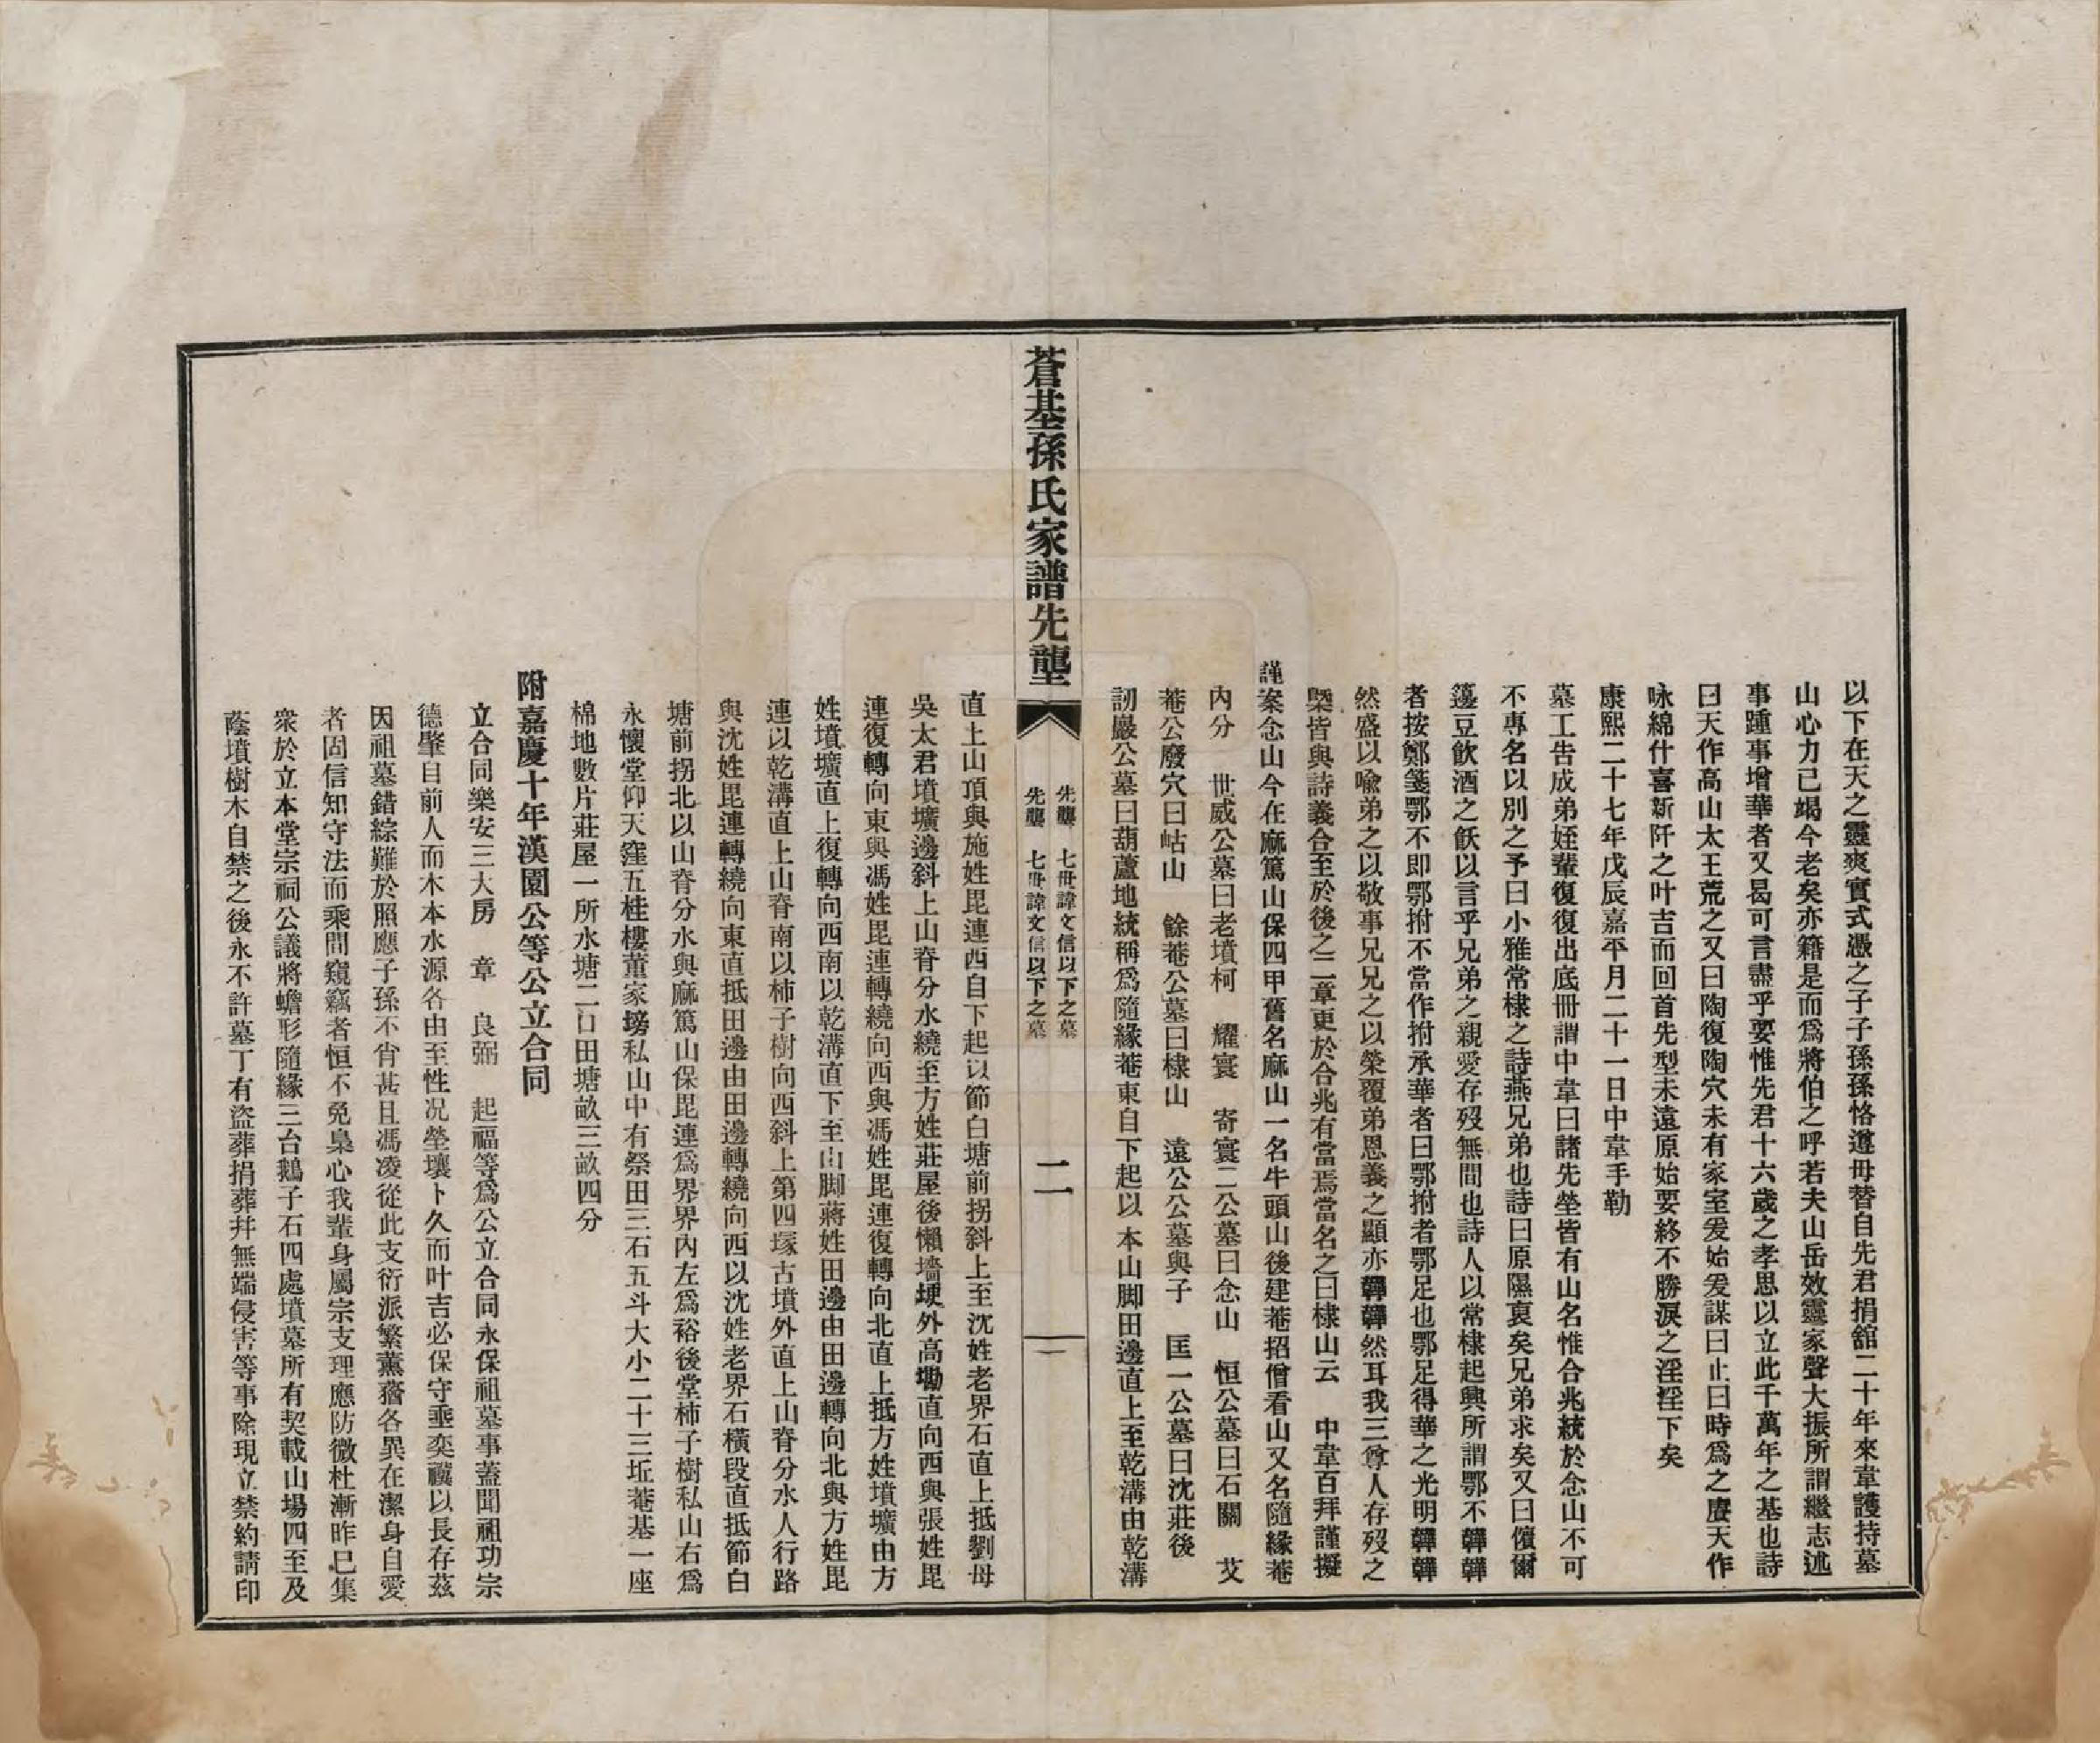 以下在天之靈爽實式憑之子子孫孫恪遵毋替自先君捐舘二十年來韋護持墓
山心力已竭今老矣亦籍是而爲將伯之呼若夫山岳效靈家聲大振所謂繼志述
事踵事增華者又曷可言盡乎要惟先君十六歲之孝思以立此千萬年之基也詩
曰天作高山太王荒之又曰陶復陶穴未有家室爰始爰謀曰止曰時爲之賡天作
咏綿什喜新阡之叶吉而回首先型未遠原始要終不勝淚之淫淫下矣
康熙二十七年戊辰嘉平月二十一日中韋手勒
墓工告成弟姪輩復復出底冊謂中韋曰諸先塋皆有山名惟合兆統於念山不可
不專名以別之予曰小雅常棣之詩燕兄弟也詩曰原隰裒矣兄弟求矣又曰儐爾
籩豆飲酒之飫以言乎兄弟之親愛存歿無間也詩人以常棣起興所謂鄂不韡韡
者按鄭箋鄂不即鄂拊不當作拊承華者曰鄂拊者鄂足也鄂足得華之光明韡韡
然盛以喩弟之以敬事兄兄之以榮覆弟恩義之顯亦韡韡然耳我三尊人存歿之
槩皆與詩義合至於後之二章更於合兆有當焉當名之曰棣山云　中韋百拜謹擬
謹案念山今在麻篤山保四甲舊名麻山一名牛頭山後建菴招僧看山又名隨緣菴
內分　世威公墓曰老墳柯　耀寰　寄寰二公墓曰念山　恒公墓曰石關　艾
菴公廢穴曰岵山　餘菴公墓曰棣山　遠公公墓與子　匡一公墓曰沈莊後
訒巖公墓曰葫蘆地統稱爲隨緣菴東自下起以本山脚田邊直上至乾溝由乾溝
蒼基孫氏家譜先壟
先壟　七世諱文信以下之墓
先壟　七世諱文信以下之墓
二
直上山頂與施姓毘連西自下起以節白塘前拐斜上至沈姓老界石直上抵劉母
吳太君墳壙邊斜上山脊分水繞至方姓莊屋後懶墻埂外高墈直向西與張姓毘
連復轉向東與馮姓毘連轉繞向西與馮姓毘連復轉向北直上抵方姓墳壙由方
姓墳壙直上復轉向西南以乾溝直下至山脚蔣姓田邊由田邊轉向北與方姓毘
連以乾溝直上山脊南以柿子樹向西斜上第四塚古墳外直上山脊分水人行路
與沈姓毘連轉繞向東直抵田邊由田邊轉繞向西以沈姓老界石橫段直抵節白
塘前拐北以山脊分水與麻篤山保毘連爲界界內左爲裕後堂柿子樹私山右爲
永懷堂仰天窪五桂樓董家塝私山中有祭田三石五斗大小二十三坵菴基一座
棉地數片莊屋一所水塘二口田塘畝三畝四分
附嘉慶十年漢園公等公立合同
立合同樂安三大房　章　良弼　起福等爲公立合同永保祖墓事蓋聞祖功宗
德肇自前人而木本水源各由至性况塋壤卜久而叶吉必保守垂奕禩以長存茲
因祖墓錯綜難於照應子孫不肖甚且馮凌從此支衍派繁薰蕕各異在潔身自愛
者固信知守法而乘間窺竊者恒不免梟心我輩身屬宗支理應防微杜漸昨巳集
衆於立本堂宗祠公議將蟾形隨緣三台鵝子石四處墳墓所有契載山場四至及
蔭墳樹木自禁之後永不許墓丁有盜葬捐葬幷無端侵害等事除現立禁約請印